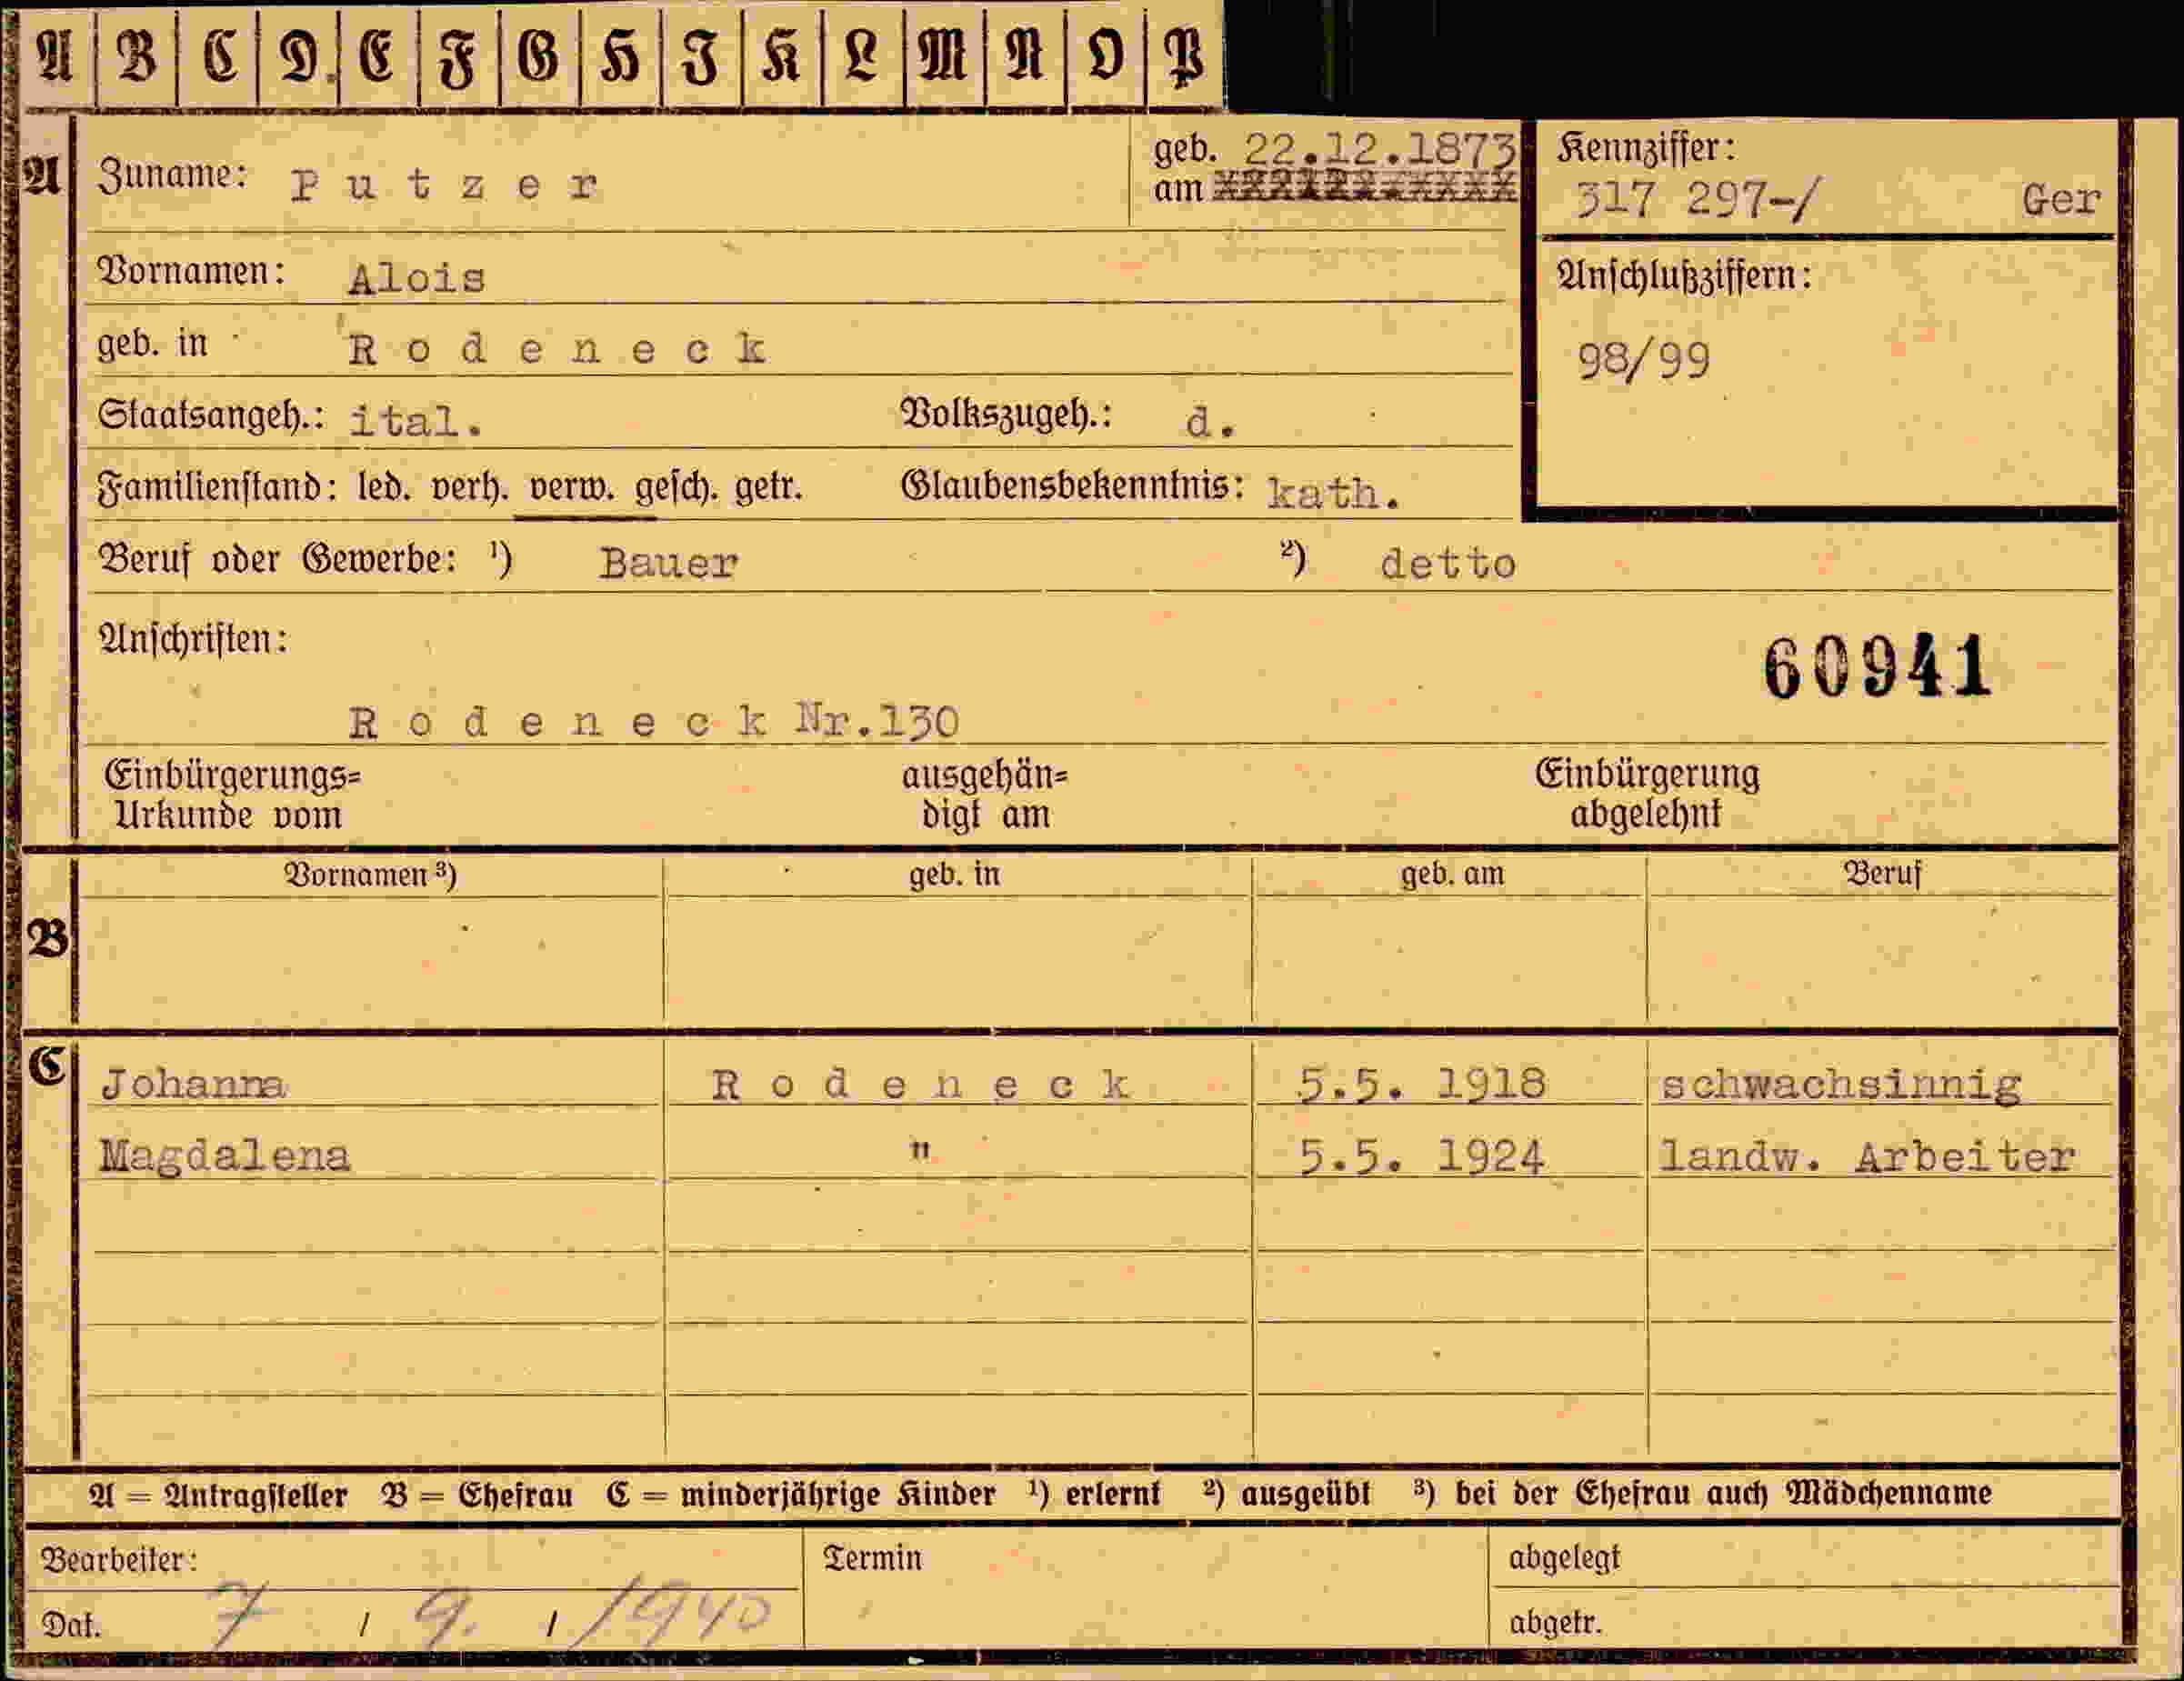 A B C D E F G H I K L M N O P
A Zuname: Putzer
geb. am 22.12.1873
Kennziffer:
317 297-/ Ger
Vornamen: Alois
Anschlußziffern:
98/99
geb. in Rodeneck
Staatsangeh.: ital. Volkszugeh.: d.
Familienstand: led. verh. verw. gesch. getr. Glaubensbekenntnis: kath.
Beruf oder Gewerbe: ¹) Bauer ²) detto
Anschriften:
60941
Rodeneck Nr.130
Einbürgerungs= ausgehän= Einbürgerung
Urkunde vom digt am abgelehnt
B Vornamen ³) geb. in geb. am Beruf
C Johanna Rodeneck 5.5. 1918 schwachsinnig
Magdalena " 5.5. 1924 landw. Arbeiter
A = Antragsteller B = Ehefrau C = minderjährige Kinder ¹) erlernt ²) ausgeübt ³) bei der Ehefrau auch Mädchenname
Bearbeiter: Termin abgelegt
Dat. 7 / 9. / 1940 abgetr.